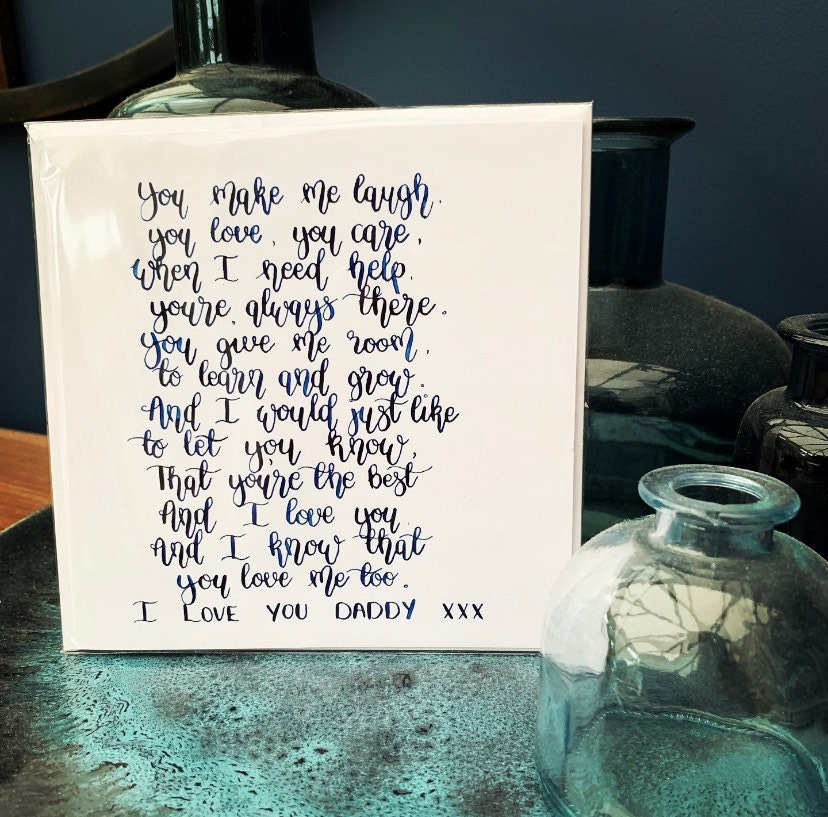 you make me laugh.
you love, you care,
when I need help.
youre always there.
You give me room,
to learn and grow.
And I would just like
to let you know,
That you're the Best
And I love you
And I know that
you love me too.
I LOVE YOU DADDY XXX